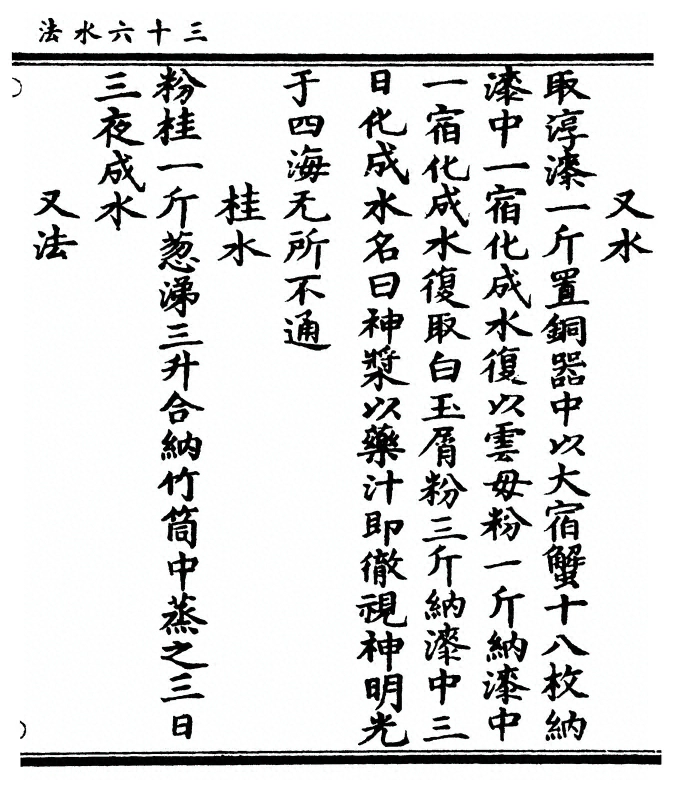 三十六水法
又水
取淳漆一斤置銅器中以大宿蟹十八枚納
漆中一宿化成水復以雲母粉一斤納漆中
一宿化成水復取白玉屑粉三斤納漆中三
日化成水名曰神漿以藥汁即徹視神明光
于四海无所不通
桂水
粉桂一斤葱涕三升合納竹筒中蒸之三日
三夜成水
又法